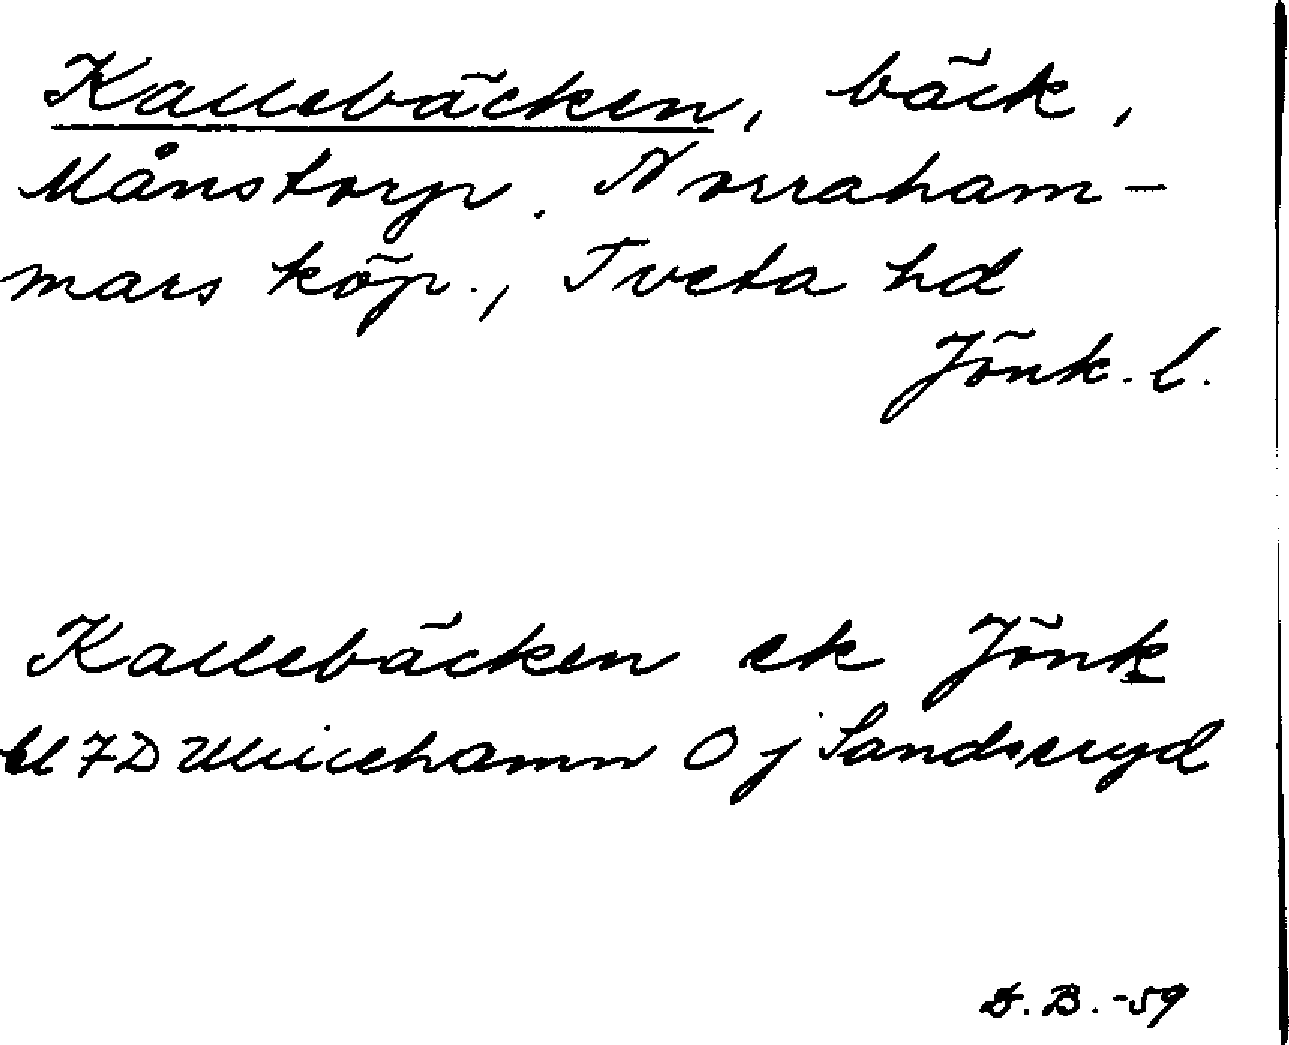 Kallebäcken, bäck,
Månstorp. Norraham-
mars köp., Tveta hd
Jönk. l.
Kallebäcken ek Jönk
bl 7D Ulricehamn O j Sandseryd
D.B.-59